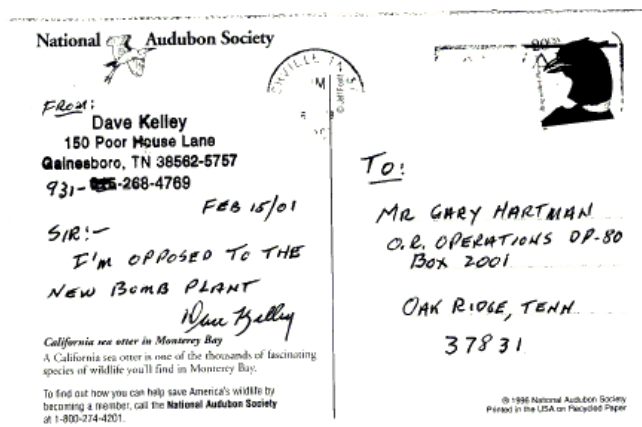 National Audubon Society
FROM:
Dave Kelley
150 Poor House Lane
Gainesboro, TN 38562-5757
931-268-4769
FEB 15/01
SIR!-
I'M OPPOSED TO THE
NEW BOMB PLANT
Dave Kelley
California sea otter in Monterey Bay
A California sea otter is one of the thousands of fascinating
species of wildlife you'll find in Monterey Bay.
To find out how you can help save America's wildlife by
becoming a member, call the National Audubon Society
at 1-800-274-4201.
TO:
MR GARY HARTMAN
O.R. OPERATIONS DP-80
BOX 2001
OAK RIDGE, TENN
37831
© 1996 National Audubon Society
Printed in the USA on Recycled Paper